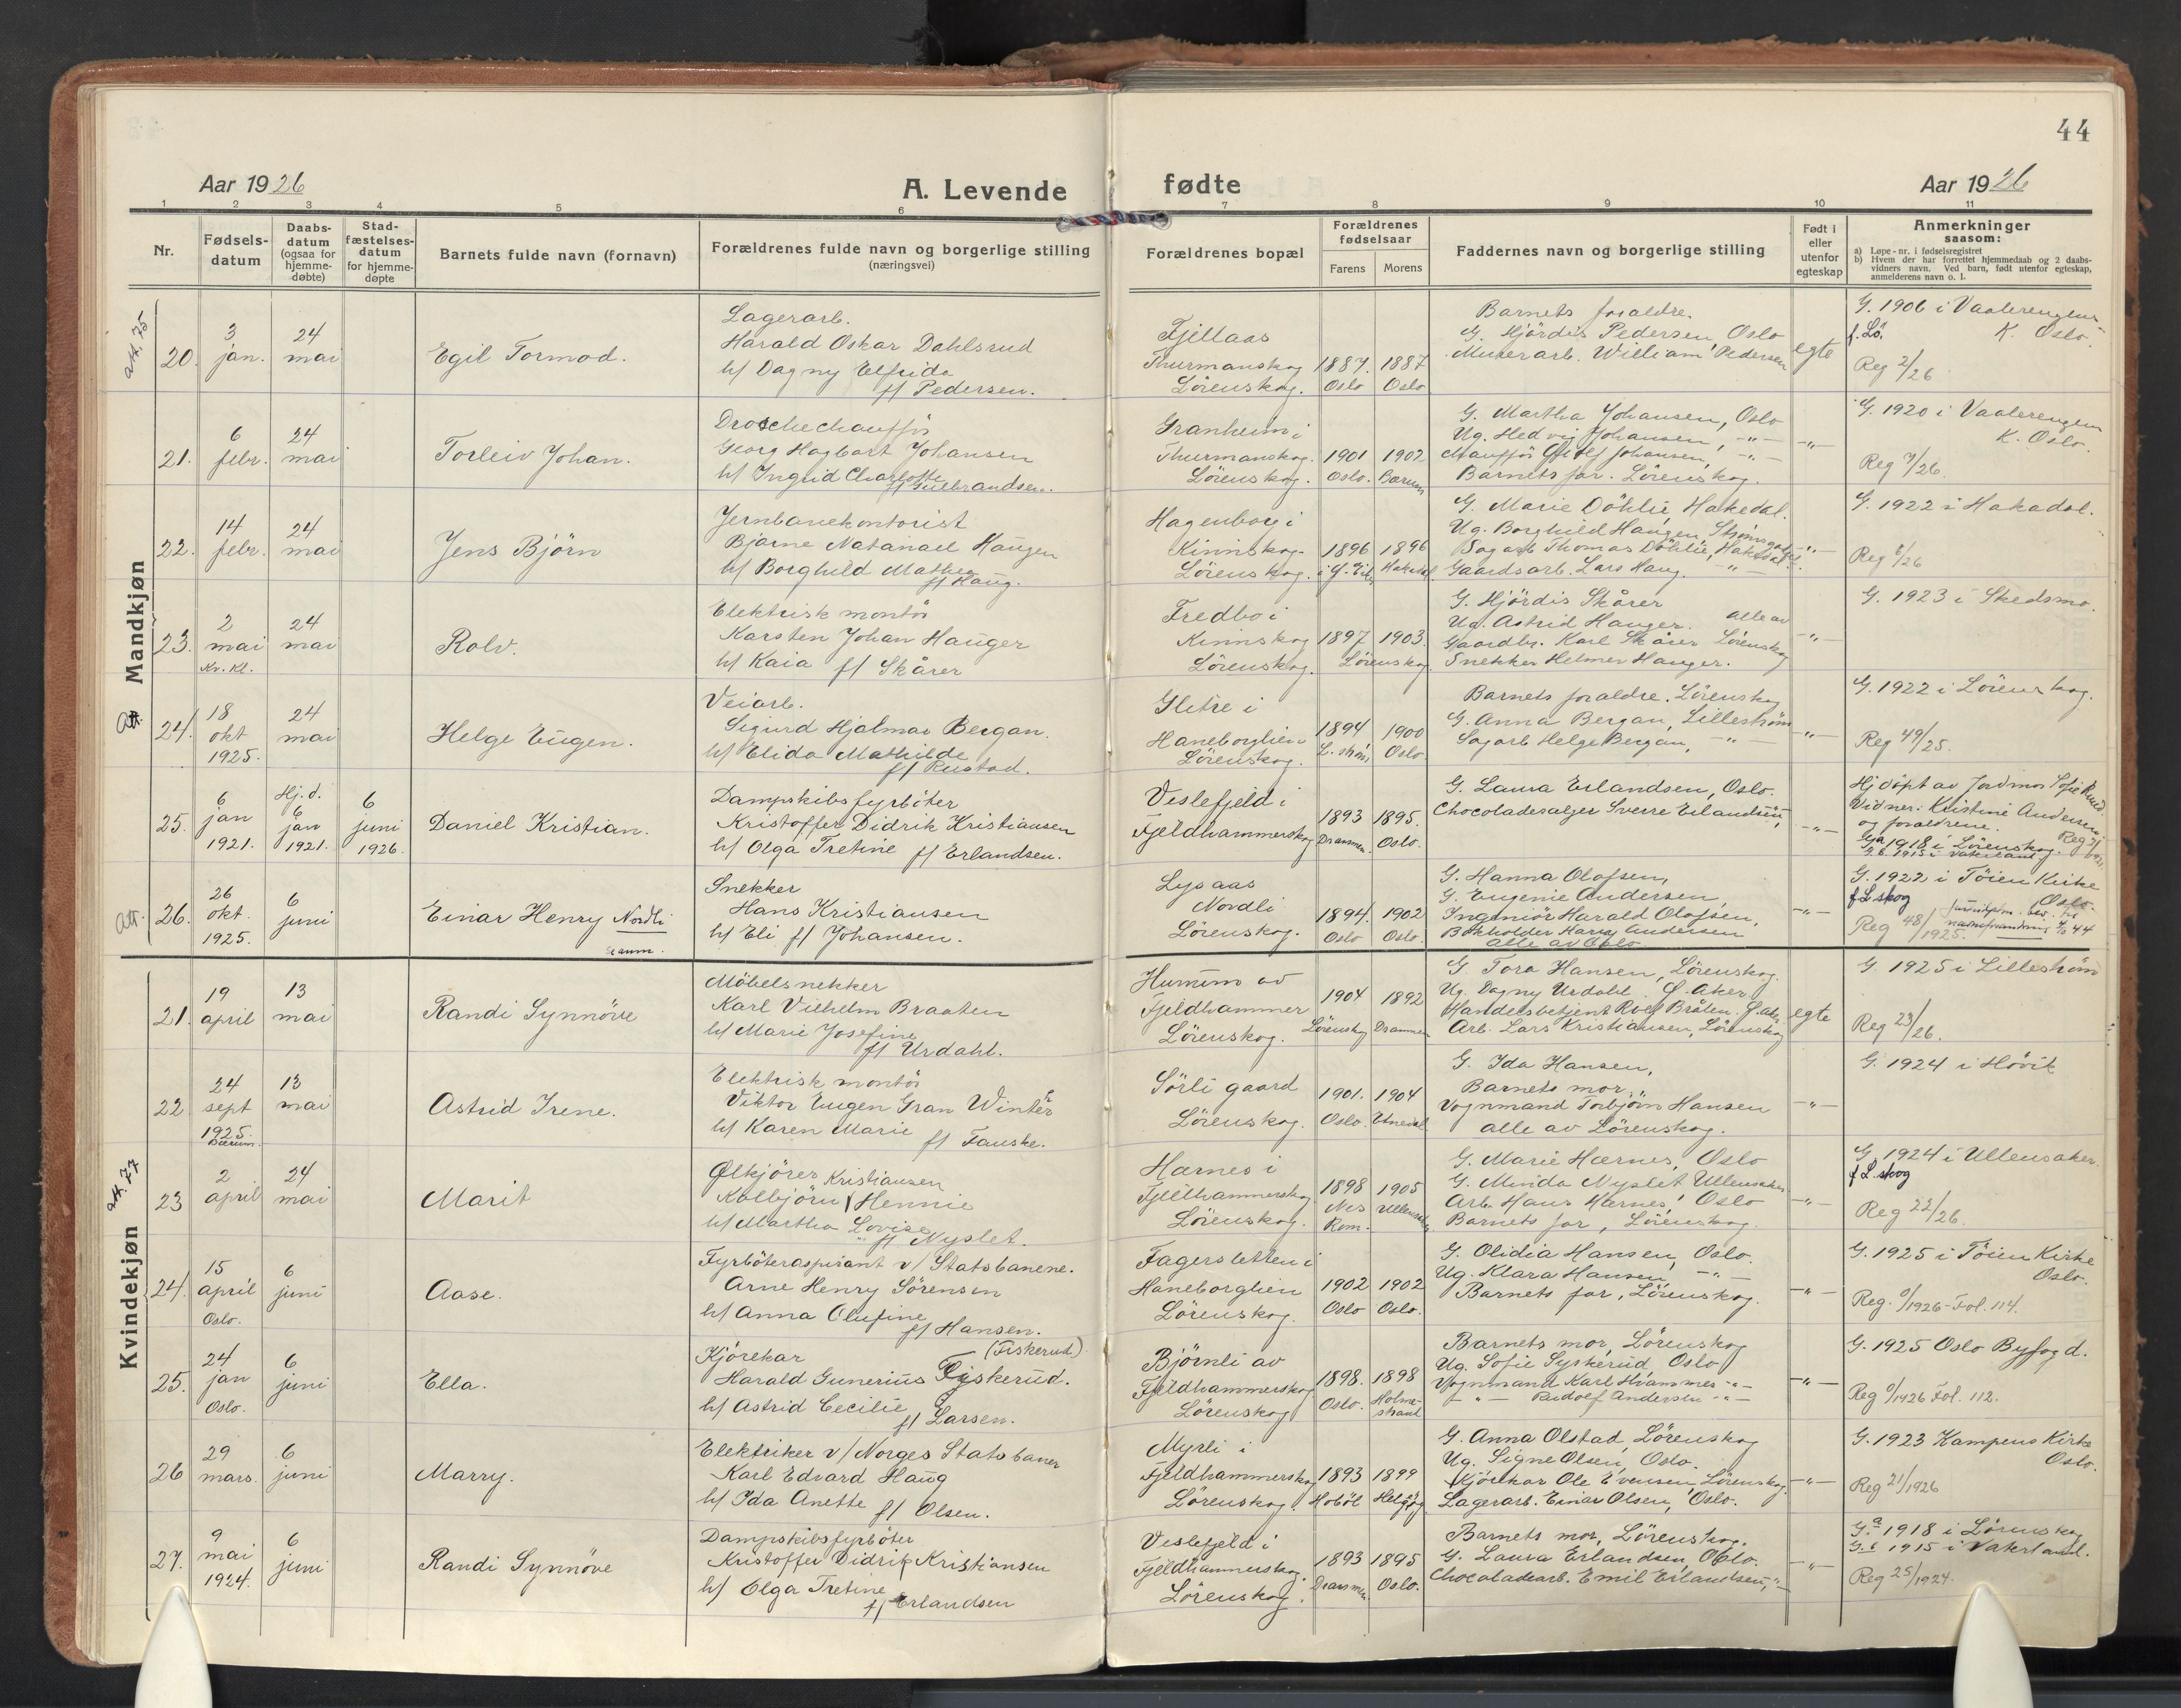 44
Aar 1926
A. Levende
fødte
Aar 1926
1 2 3 4 5 6 7 8 9 10 11
Nr.
Fødsels-
datum
Daabs-
datum
(ogsaa for
hjemme-
døbte)
Stad-
fæstelses-
datum
for hjemme-
døpte
Barnets fulde navn (fornavn)
Forældrenes fulde navn og borgerlige stilling
(næringsvei)
Forældrenes bopæl
Forældrenes
fødselsaar
Farens Morens
Faddernes navn og borgerlige stilling
Født i
eller
utenfor
egteskap
Anmerkninger
saasom:
a) Løpe-nr. i fødselsregistret
b) Hvem der har forrettet hjemmedaab og 2 daabs-
vidners navn. Ved barn, født utenfor egteskap,
anmelderens navn o. l.
Mandkjøn
att. 75
20.
3
jan.
24
mai
Egil Tormod.
Lagerarb.
Harald Oskar Dahlsrud
h/ Dagny Elfrida
f/ Pedersen.
Fjellaas
Thurmanskog
Lörenskog.
1887. 1887
Oslo Oslo
Barnets foraldre.
G. Hjördis Pedersen, Oslo
Murerarb. William Pedersen
egte
G. 1906 i Vaalerengens
f. Lö. K. Oslo.
Reg 2/26
21.
6
febr.
24
mai
Torleiv Johan.
Droschechaufför
Georg Hagbart Johansen
h/ Ingrid Charlotte
f/ Gulbrandsen.
Granheim i
Thurmanskog.
Lörenskog.
1901 1902
Oslo. Bærum
G. Martha Johansen, Oslo
Ug. Hedvig Johansen, -"-
Chaufför Johansen, -"-
Barnets far. Lörenskog.
-"-
G. 1920 i Vaalerengen
K. Oslo.
Reg 7/26.
22.
14
febr.
24
mai
Jens Björn
Jernbanekontorist
Bjarne Natanael Haugen
h/ Borghild Mathea
f/ Haug.
Hagenborg i
Kinnskog.
Lörenskog.
1896 1896
Hakadal
G. Marie Döhlie, Hakedal.
Ug. Borghild Haugen,
Sagarb Thomas Döhlie, Hakedal
Gaardsarb. Lars Haug. -"-
-"-
G. 1922 i Hakadal.
Reg 6/26
23.
2
mai
Kr. Kl.
24
mai
Rolv.
Elektrisk montör
Karsten Johan Hauger
h/ Kaia f/ Skårer
Fredbo i
Kinnskog
Lörenskog.
1897 1903.
Lörenskog.
G. Hjördis Skårer
Ug. Astrid Hauger. alle av
Gaardbr. Karl Skårer Lörenskog
Snekker Helmer Hauger.
-"-
G. 1923 i Skedsmo.
24.
18
okt
1925.
24
mai
Helge Eugen.
Veiarb.
Sigurd Hjalmar Bergan.
h/ Elida Mathilde
f/ Rustad.
Glitre i
Haneborglien
Lörenskog.
1894 1900
L.ström Oslo
Barnets foraldre. Lörenskog
G. Anna Bergan, Lilleström
Sagarb Helge Bergan, -"-
-"-
G. 1922 i Lörenskog.
Reg 49/25.
25.
6
jan
1921.
Hj. d.
6
jan
1921.
6
juni
1926.
Daniel Kristian.
Dampskibsfyrböter
Kristoffer Didrik Kristiansen
h/ Olga Tretine f/ Erlandsen.
Veslefjeld i
Fjeldhammerskog
1893 1895.
Drammen. Oslo.
G. Laura Erlandsen, Oslo.
Chocoladesælger Sverre Erlandsen,
-"-
Hjdöpt av Jordmor Sofie Ruud.
Vidner: Kristine Andersen
og foraldrene.
Ga 1918 i Lörenskog.
G. b. 1915 i Vaterland
Att.
26.
26
okt.
1925.
6
juni
Einar Henry Nordli
Snekker
Hans Kristiansen
h/ Eli f/ Johansen.
Lysaas
Nordli
Lörenskog.
1894. 1902
Oslo Oslo.
G. Hanna Olafsen,
G. Eugenie Andersen,
Ingeniör Harald Olafsen,
Bokholder Harry Andersen
alle av Oslo
-"-
G. 1922 i Töien Kirke
f L skog Oslo.
Reg 48/1925.
Kvindekjøn
21.
19
april
13
mai
Randi Synnöve
Möbelsnekker
Karl Vilhelm Braaten
h/ Marie Josefine
f/ Urdahl.
av
Fjeldhammer
Lörenskog.
1904 1892
Lörenskog Drammen
G. Tora Hansen, Lörenskog.
Ug. Dagny Urdahl. Ö. Aker
Handelsbetjent Rolf Bråten. Ö. aker
Arb. Lars Kristiansen, Lörenskog
egte
G. 1925 i Lilleström
Reg 23/26.
22.
24
sept
1925.
Bærum.
13
mai
Astrid Irene.
Elektrisk montör
Viktor Eugen Gran Winter
h/ Karen Marie f/ Fauske.
Sörli gaard
Lörenskog.
1901. 1904
Oslo.
G. Ida Hansen,
Barnets mor,
Vognmand Torbjörn Hansen
alle av Lörenskog.
-"-
G. 1924 i Hövik
att. 77
23
2
april
24
mai
Marit
Ølkjörer Kristiansen
Kolbjörn Hennie
h/ Martha Lovise
f/ Nyslet.
Hærnes i
Fjellhammerskog
Lörenskog.
1898 1905
Nes Ullensaker
Rom.
G. Marie Hærnes, Oslo
G. Minda Nyslet Ullensaker
Arb. Hans Hærnes, Oslo
Barnets far, Lörenskog.
-"-
G. 1924 i Ullensaker.
f L. skog
Reg 22/26.
24.
15
april
Oslo.
6
juni
Aase.
Fyrböteraspirant v/ Statsbanene.
Arne Henry Sörensen
h/ Anna Olufine
f/ Hansen.
Fagersletten i
Haneborglien
Lörenskog.
1902 1902
Oslo Oslo.
G. Olidia Hansen, Oslo.
Ug. Klara Hansen, -"-
Barnets far, Lörenskog.
-"-
G. 1925 i Töien Kirke
Oslo.
Reg. 0/1926 - Fol. 114.
25.
24
jan
Oslo.
6
juni
Ella.
Kjörekar (Fiskerud)
Harald Gunerius Fiskerud.
h/ Astrid Cecilie f/ Larsen.
Björnli av
Fjeldhammerskog
Lörenskog
1898. 1898
Oslo. Holme-
strand
Barnets mor, Lörenskog
Ug. Sofie Syskerud, Oslo
Vognmand Karl Hvammes -"-
-"- Rudolf Andersen -"-
-"-
G. 1925 Oslo Byfogd.
Reg 0/1926 Fol. 112.
26
29
mars.
6
juni
Marry.
Elektriker v/ Norges Statsbaner
Karl Edvard Haug
h/ Ida Anette f/ Olsen.
Myrli i
Fjeldhammerskog
Lörenskog.
1893 1899
Hoböl Helgöy
G. Anna Olstad, Lörenskog
Ug. Signe Olsen, Oslo.
Kjörekar Ole Evensen, Lörenskog.
Lagerarb. Einar Olsen, Oslo.
-"-
G. 1923 Kampens Kirke
Oslo.
Reg 21/1926
27.
9
mai
1924.
6
juni
Randi Synnöve
Dampskibsfyrböter
Kristoffer Didrik Kristiansen
h/ Olga Tretine
f/ Erlandsen
Veslefjeld i
Fjeldhammerskog.
Lörenskog.
1893 1895
Drammen. Oslo.
Barnets mor, Lörenskog.
G. Laura Erlandsen, Oslo.
Chocoladearb. Emil Erlandsen, -"-
-"-
G. a 1918 i Lörenskog
G. b 1915 i Vaterland.
Reg 25/1924.